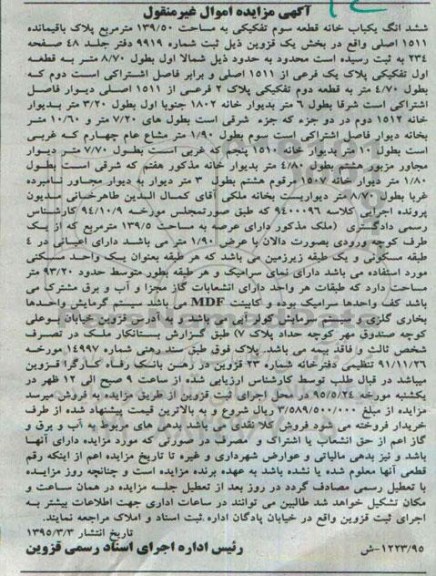 آگهی مزایده اموال غیرمنقول
ششد انگ یکباب خانه قطعه سوم تفکیکی به مساحت ۱۳۹/۵۰ مترمربع پلاک باقیمانده
۱۵۱۱ اصلی واقع در بخش یک قزوین ذیل ثبت شماره ۹۹۱۹ دفتر جلد ۴۸ صفحه
۲۳۴ به ثبت رسیده است محدود به حدود ذیل شمالا اول بطول ۸/۷۰ متر به قطعه
اول تفکیکی پلاک یک فرعی از ۱۵۱۱ اصلی و برابر فاصل اشتراکی است دوم که
بطول ۴/۷۰ متر به قطعه دوم تفکیکی پلاک ۲ فرعی از ۱۵۱۱ اصلی دیوار فاصل
اشتراکی است شرقا بطول ۶ متر بدیوار خانه ۱۸۰۲ جنوبا اول بطول ۳/۲۰ متر بدیوار
خانه ۱۵۱۲ دوم در دو جزء که جزء شرقی است بطول های ۷/۲۰ متر و ۱۰/۶۰ متر
بخانه دیوار فاصل اشتراکی است سوم بطول ۱/۹۰ متر مشاع عام چهارم که غربی
است بطول متر بدیوار خانه ۱۵۱۰ پنجم که غربی است بطول ۷/۷۰ متر دیوار
مجاور مزبور ششم بطول ۴/۸۰ متر بدیوار خانه مذکور هفتم که شرقی است بطول
۱/۸۰ متر دیوار خانه ۱۵۰۷ مرقوم هشتم بطول ۳ متر دیوار به دیوار مجاور نامبرده
غربا بطول ۸/۷۰ متر دیواریست بخانه ملکی آقای کمال الدین طاهرخانی مدیون
پرونده اجرایی کلاسه ۹۴۰۰۰۹۶ که طبق صورتمجلس مورخه ۹۴/۱۰/۹ کارشناس
رسمی دادگستری (ملک مذکور دارای عرصه به مساحت ۱۳۹/۵ مترمربع که از یک
طرف کوچه ورودی بصورت دالان با عرض ۱/۹۰ متر می باشد دارای اعیانی در ۴
طبقه مسکونی و یک طبقه زیرزمین می باشد که هر طبقه بعنوان یک واحد مسکنی
مورد استفاده می باشد دارای نمای سرامیک و هر طبقه بطور متوسط حدود ۹۳/۲۰ متر
مساحت دارد که طبقات هر واحد دارای انشعابات گاز مجزا و آب و برق مشترک می
باشد کف واحدها سرامیک بوده و کابینت MDF می باشد سیستم گرمایش واحدها
بخاری گازی و سیستم سرمایش کولر آبی می باشد و به آدرس قزوین خیابان بوعلی
کوچه صندوق مهر کوچه حداد پلاک ۷) طبق گزارش بستانکار ملک در تصرف
شخص ثالث و فاقد بیمه می باشد. پلاک فوق طبق سند رهنی شماره ۱۴۹۹۷ مورخه
۹۱/۱۱/۲۶ تنظیمی دفترخانه شماره ۲۳ قزوین در رهن بانک رفاه کارگرا قزوین
میباشد در قبال طلب توسط کارشناس ارزیابی شده از ساعت ۹ صبح الی ۱۲ ظهر در
یکشنبه مورخه ۹۵/۵/۲۴ در محل اجرای ثبت قزوین از طریق مزایده به فروش میرسد
مزایده از مبلغ ۳/۵۸۹/۵۰۰/۰۰۰ ریال شروع و به بالاترین قیمت پیشنهاد شده از طرف
خریدار فروخته می شود فروش کلا نقدی می باشد بدهی های مربوط به آب و برق و
گاز اعم از حق انشعاب یا اشتراک و مصرف در صورتی که مورد مزایده دارای آنها
باشد و نیز بدهی مالیاتی و عوارض شهرداری و غیره تا تاریخ مزایده اعم از اینکه رقم
قطعی آنها معلوم شده یا نشده باشد به عهده برنده مزایده است و چنانچه روز مزایده
با تعطیل رسمی مصادف گردد در روز بعد از تعطیل جلسه مزایده در همان ساعت و
مکان تشکیل خواهد شد طالبین می توانند در ساعات اداری جهت اطلاعات بیشتر به
اجرای ثبت قزوین واقع در خیابان پادگان اداره.ثبت اسناد و املاک مراجعه نمایند.
تاریخ انتشار ۱۳۹۵/۳/۳
۱۲۲۳/۹۵-ش رئیس اداره اجرای اسناد رسمی قزوین